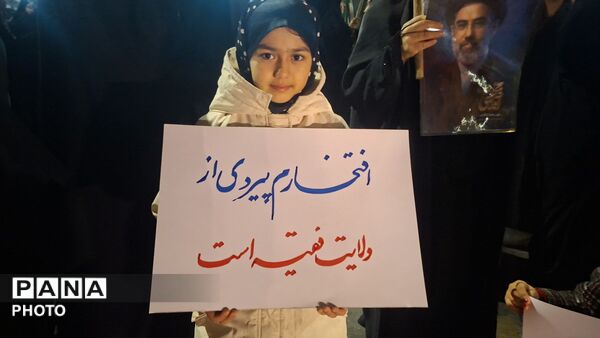 افتخارم پیروی از
ولایت فقیه است
PANA
PHOTO